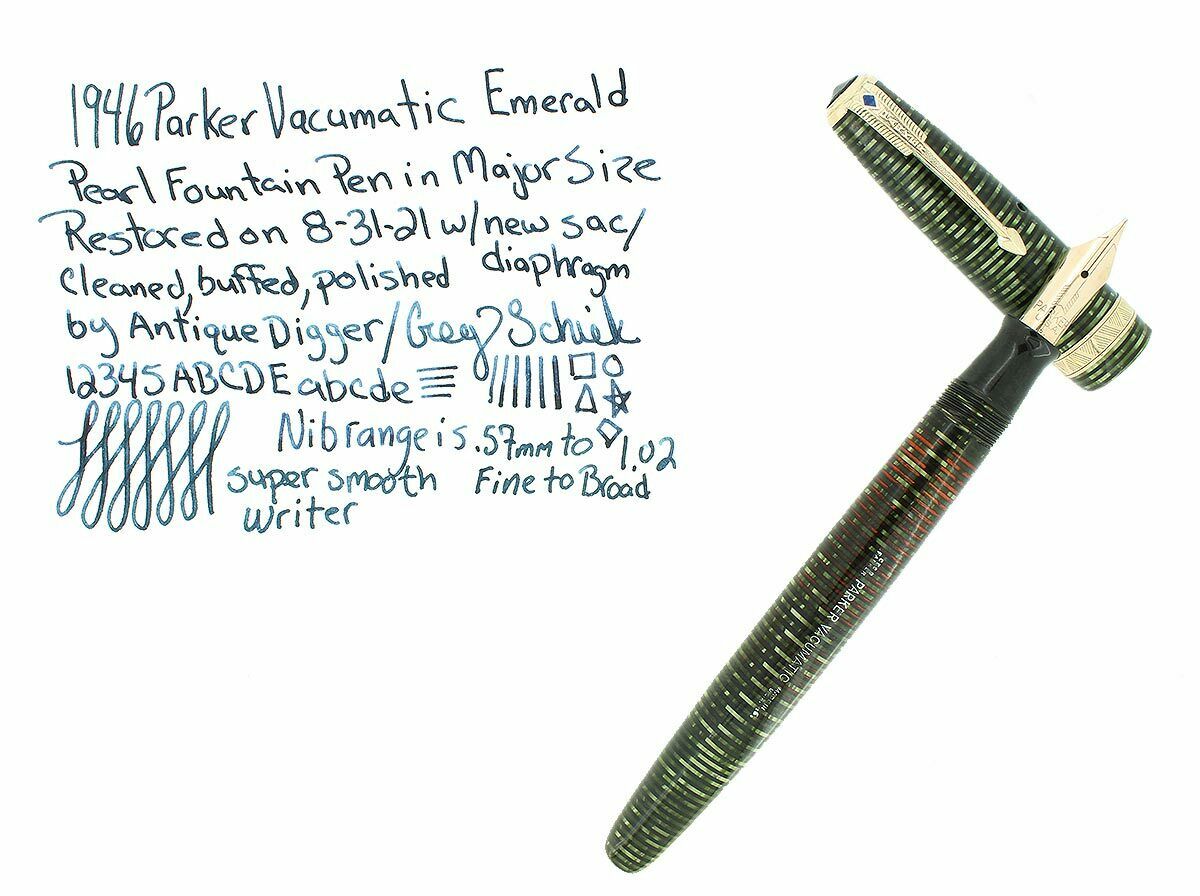 1946 Parker Vacumatic Emerald
Pearl Fountain Pen in Major Size
Restored on 8-31-21 w/new sac/
diaphragm
cleaned, buffed, polished
by Antique Digger/Greg Schiek
12345 ABCDE abcde
Nib range is .57mm to 1.02
super smooth Fine to Broad
writer
PARKER VACUMATIC